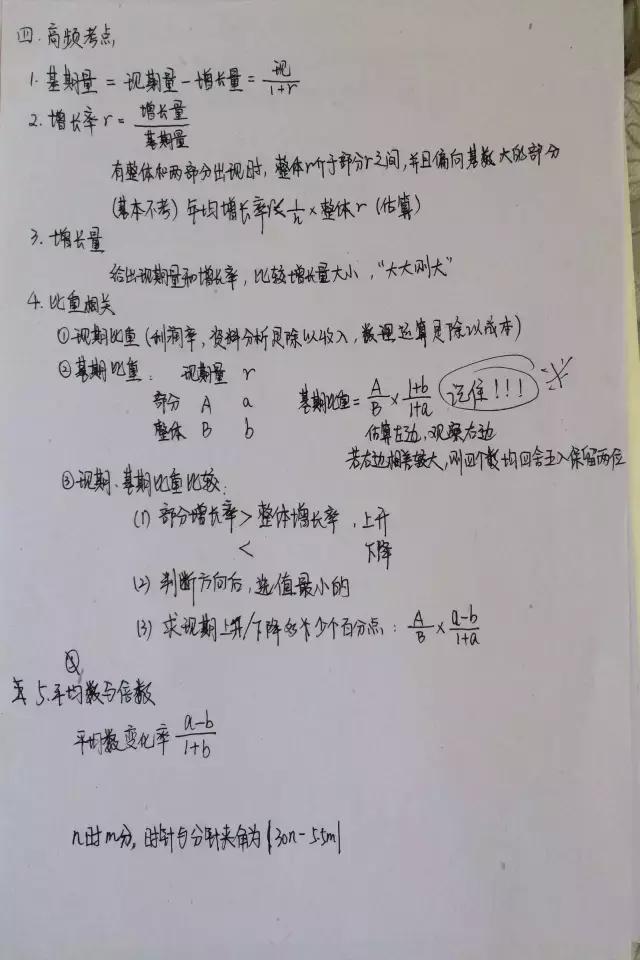 四.高频考点
1.基期量 = 现期量 - 增长量 = 现/(1+r)
2.增长率 r = 增长量/基期量
有整体和两部分出现时，整体r介于部分r之间，并且偏向基数大的部分
(基本不考) 年均增长率≤ 1/n × 整体r (估算)
3.增长量
给出现期量和增长率，比较增长量大小，“大大则大”
4.比重相关
①现期比重(利润率，资料分析是除以收入，数理运算是除以成本)
②基期比重： 现期量 r
部分 A a 基期比重= A/B × (1+b)/(1+a) 记住!!!
整体 B b 估算左边，观察右边
若右边相差较大，则四个数均四舍五入保留两位
③现期、基期比重比较：
(1) 部分增长率 > 整体增长率，上升
< 下降
(2) 判断方向后，选值最小的
(3) 求现期上升/下降多少个百分点： A/B × (a-b)/(1+a)
5.平均数与倍数
平均数变化率 (a-b)/(1+b)
n时m分，时针与分针夹角为|30n-5.5m|